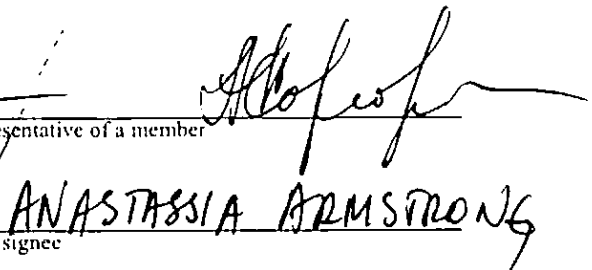 esentative of a member
ANASTASSIA ARMSTRONG
signee